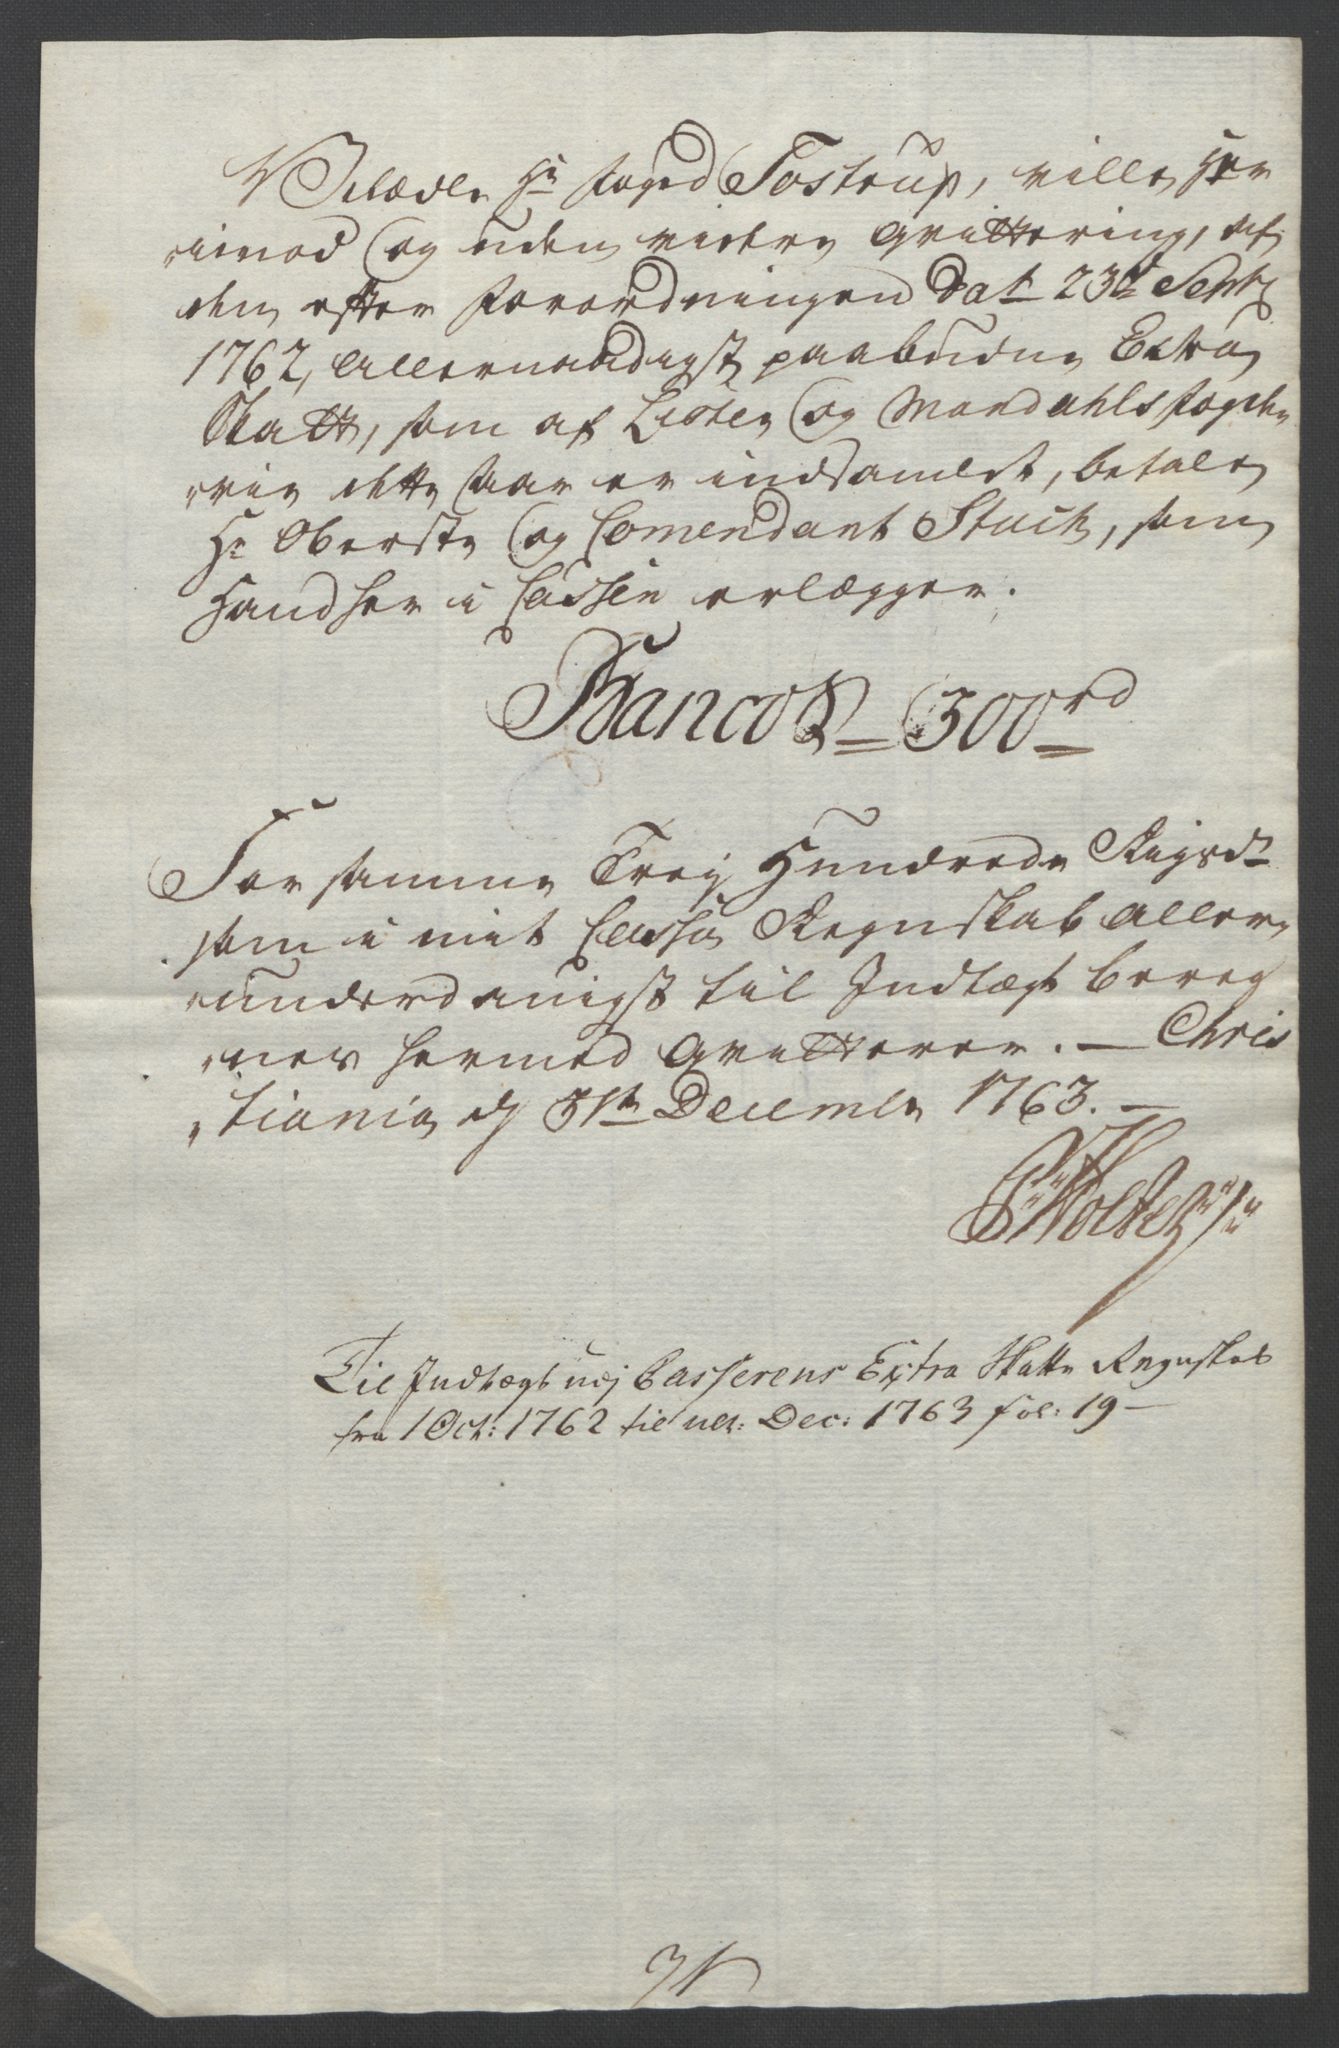 Velædle Hr Foged Tostrup, ville her
imod og uden videre Qvittering, af
den efter Forordningen Dat 23de Septr
1762, Allernaadigst paabudne Extra
Skatt, som af Lister og Mandahls Fogde
rie dette Aar er indsamlet, betale
Hr Oberste og Comendant Stuch, som
Hand her i Cassen erlægger.
Banco 300rd
For samme Trej Hundrede Rigsdr
som i mit Cassa Regnskab aller
underdanigst til Indtægt bereg
nes hermed Qvitterer. — Chris
tiania d 31te Decembr 1763. —
Holter
Til Indtægt udj Casserens Extra Skatte Regnskab
fra 1 Oct: 1762 til ult: Dec: 1763 fol: 19 —